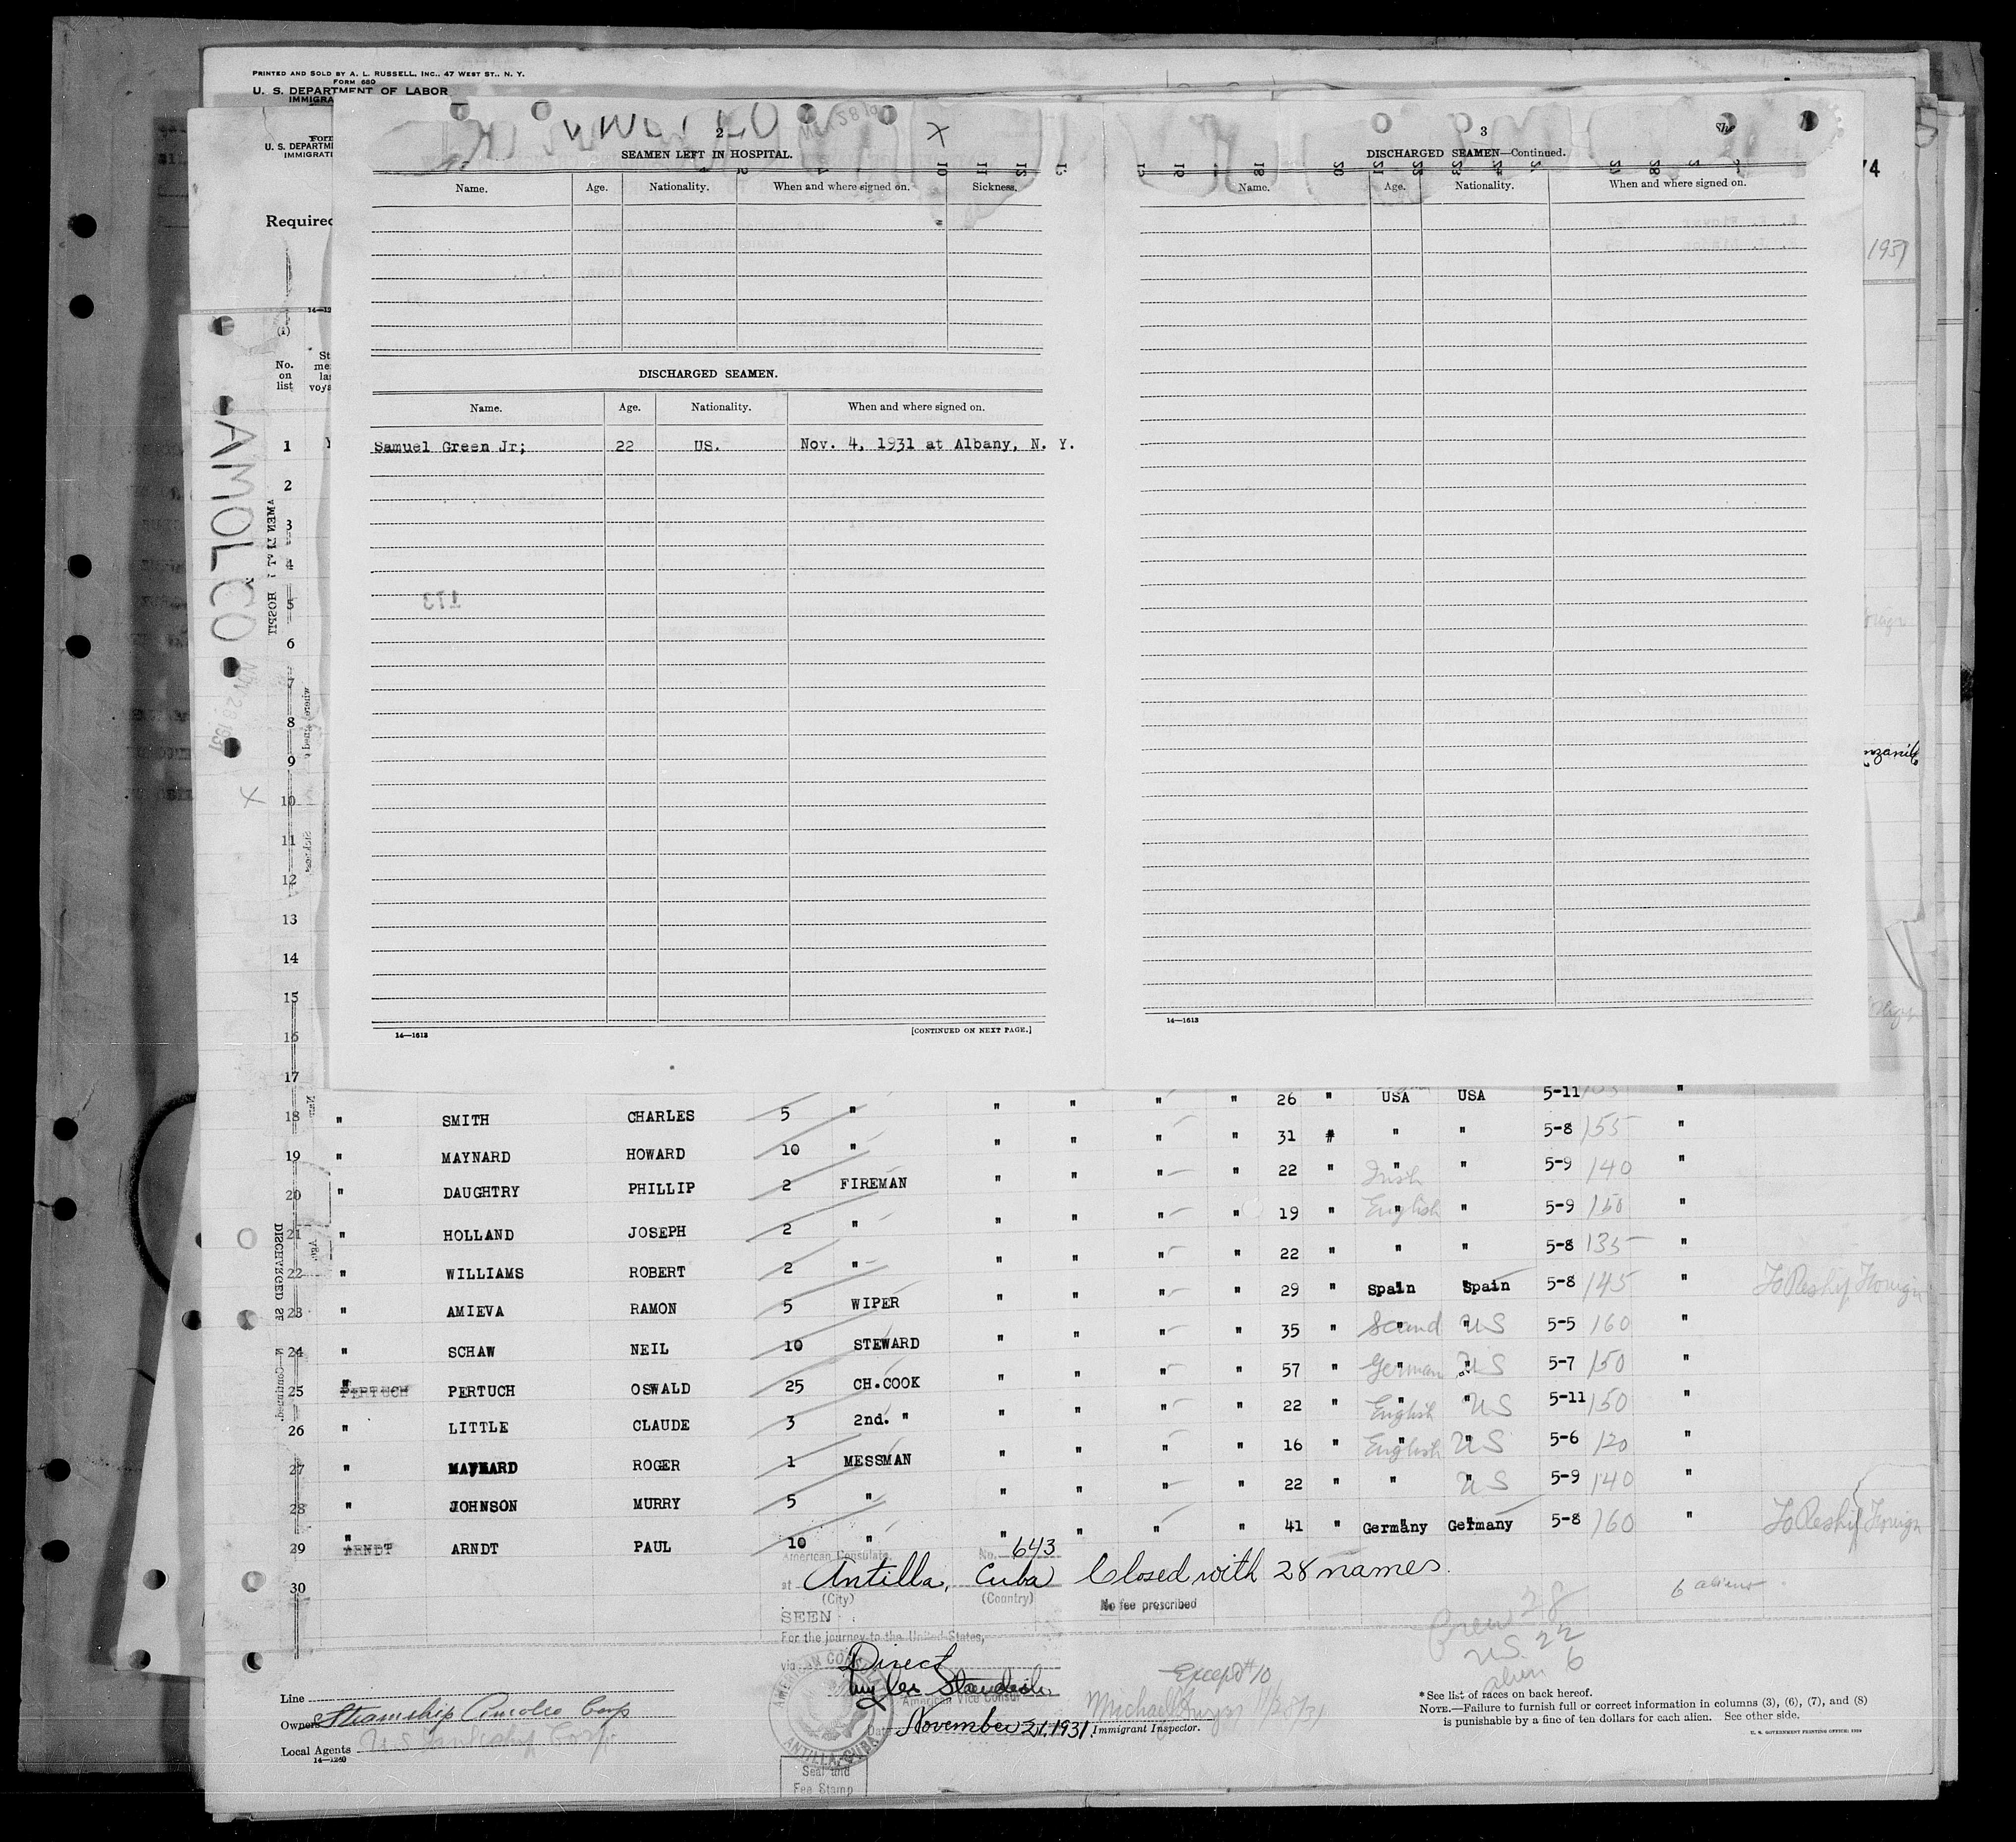 PRINTED AND SOLD BY A. L. RUSSELL, INC., 47 WEST ST., N. Y.
FORM 680
U. S. DEPARTMENT OF LABOR
IMMIGRA
U. S. DEPARTME
IMMIGRATI
Required
14—12
No. on list
AMOLCO
NOV 28 1931
X
2
SEAMEN LEFT IN HOSPITAL.
Name. Age. Nationality. When and where signed on. Sickness.
DISCHARGED SEAMEN.
Name. Age. Nationality. When and where signed on.
Samuel Green Jr; 22 US. Nov. 4, 1931 at Albany, N. Y.
173
14—1613 [CONTINUED ON NEXT PAGE.]
3
DISCHARGED SEAMEN—Continued.
Name. Age. Nationality. When and where signed on.
14—1613
74
1931
1
2
3
4
5
6
7
8
9
10
11
12
13
14
15
16
17
26 " USA USA 5-11 "
18 " SMITH CHARLES 5 " " " " " 31 # " " 5-8 155 "
19 " MAYNARD HOWARD 10 " " " " " 22 " Irish " 5-9 140 "
20 " DAUGHTRY PHILLIP 2 FIREMAN " " " " 19 " English " 5-9 150 "
21 " HOLLAND JOSEPH 2 " " " " " 22 " " " 5-8 135 "
22 " WILLIAMS ROBERT 2 " " " " " 29 " Spain Spain 5-8 145 " To Reship Foreign
23 " AMIEVA RAMON 5 WIPER " " " " 35 " Scand US 5-5 160 "
24 " SCHAW NEIL 10 STEWARD " " " " 57 " German US 5-7 150 "
25 PERTUCH PERTUCH OSWALD 25 CH.COOK " " " " 22 " English US 5-11 150 "
26 " LITTLE CLAUDE 3 2nd. " " " " " 16 " English US 5-6 120 "
27 " MAYNARD ROGER 1 MESSMAN " " " " 22 " " US 5-9 140 "
28 " JOHNSON MURRY 5 " " " " " 41 " Germany Germany 5-8 160 " To Reship Foreign
29 ARNDT ARNDT PAUL 10 "
30
American Consulate No. 643
at Antilla, Cuba Closed with 28 names.
(City) (Country) No fee prescribed
SEEN
For the journey to the United States,
via Direct
American Vice Consul
Date November 21, 1931.
AMERICAN CONSULATE
ANTILLA, CUBA
Seal and
Fee Stamp
Except #10
11/28/31
Immigrant Inspector.
6 aliens
Crew 28
US 22
alien 6
Line
Owners Steamship Amolco Corp
Local Agents
14—1240
* See list of races on back hereof.
NOTE.—Failure to furnish full or correct information in columns (3), (6), (7), and (8)
is punishable by a fine of ten dollars for each alien. See other side.
U. S. GOVERNMENT PRINTING OFFICE: 1929